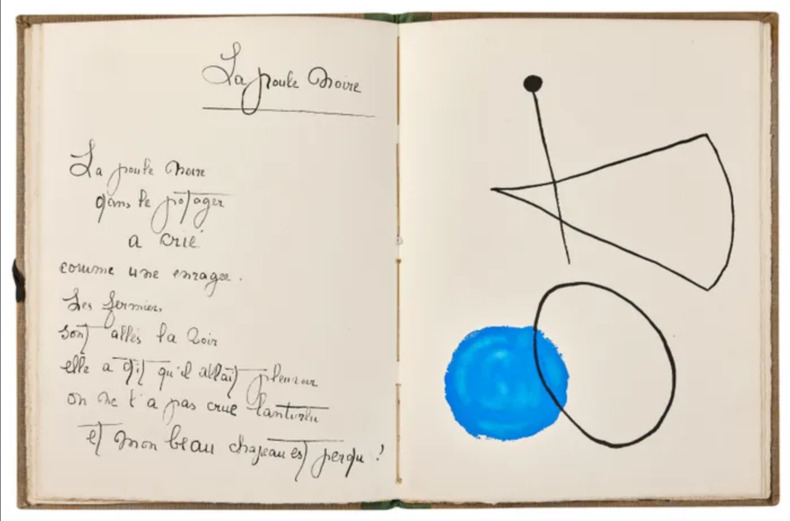 La poule Noire
La poule Noire
dans le potager
a crié
comme une enragée.
Les fermiers
sont allés la voir
elle a dit qu'il allait pleuvoir
on ne l'a pas crue lanturlu
et mon beau chapeau est perdu !